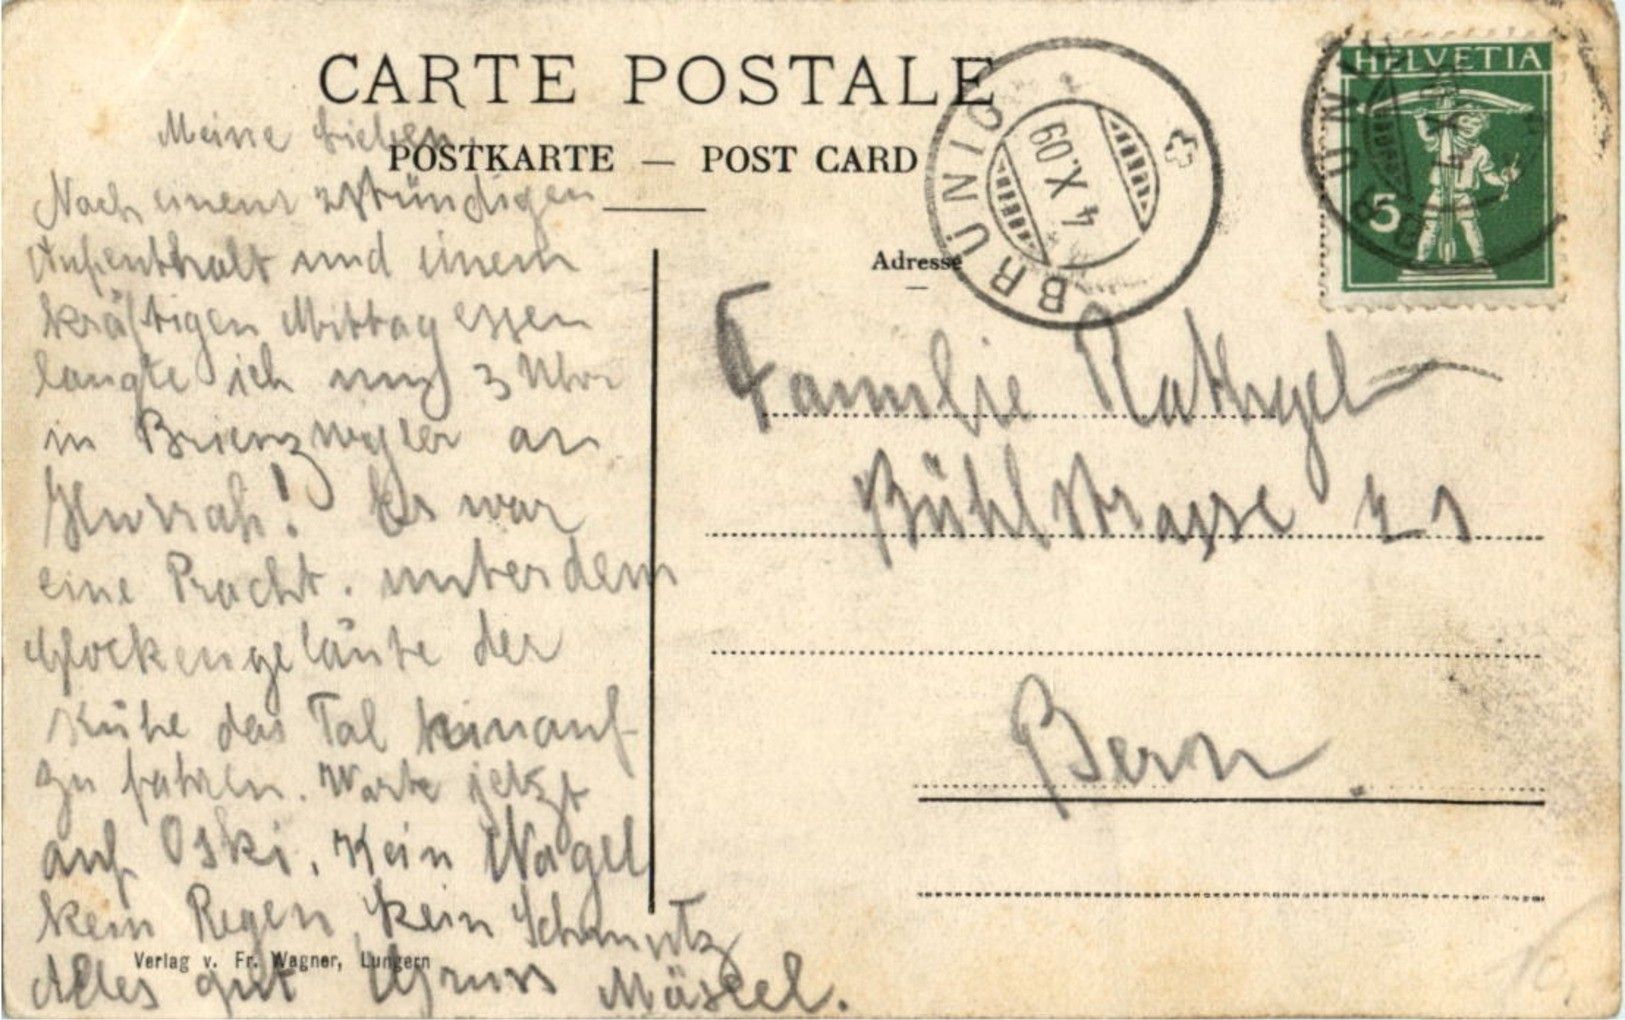 CARTE POSTALE
POSTKARTE — POST CARD
Adresse
BRÜNIG
4.X.09
HELVETIA
5
BRÜNIG
Meine Lieben
Nach einem 2stündigen
Aufenthalt und einem
kräftigen Mittagessen
langte ich um 3 Uhr
in Brienzwyler an
Hurrah! Es war
eine Pracht. unter dem
Glockengeläute der
Kühe das Tal hinauf
zu fahren. Warte jetzt
auf Oski. Kein Nagel
kein Regen, kein Schmutz
Alles gut Gruss
Familie Rathgeb
Bühlstrasse 21
Bern.
Verlag v. Fr. Wagner, Lungern
10.